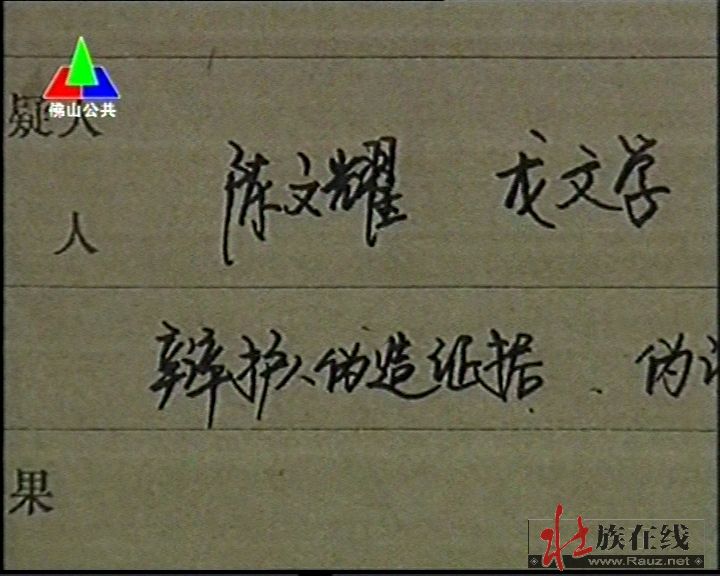 佛山公共
疑人
陈文耀 龙文学
人
辩护人伪造证据、伪证
果
壮族在线
www.Rauz.net